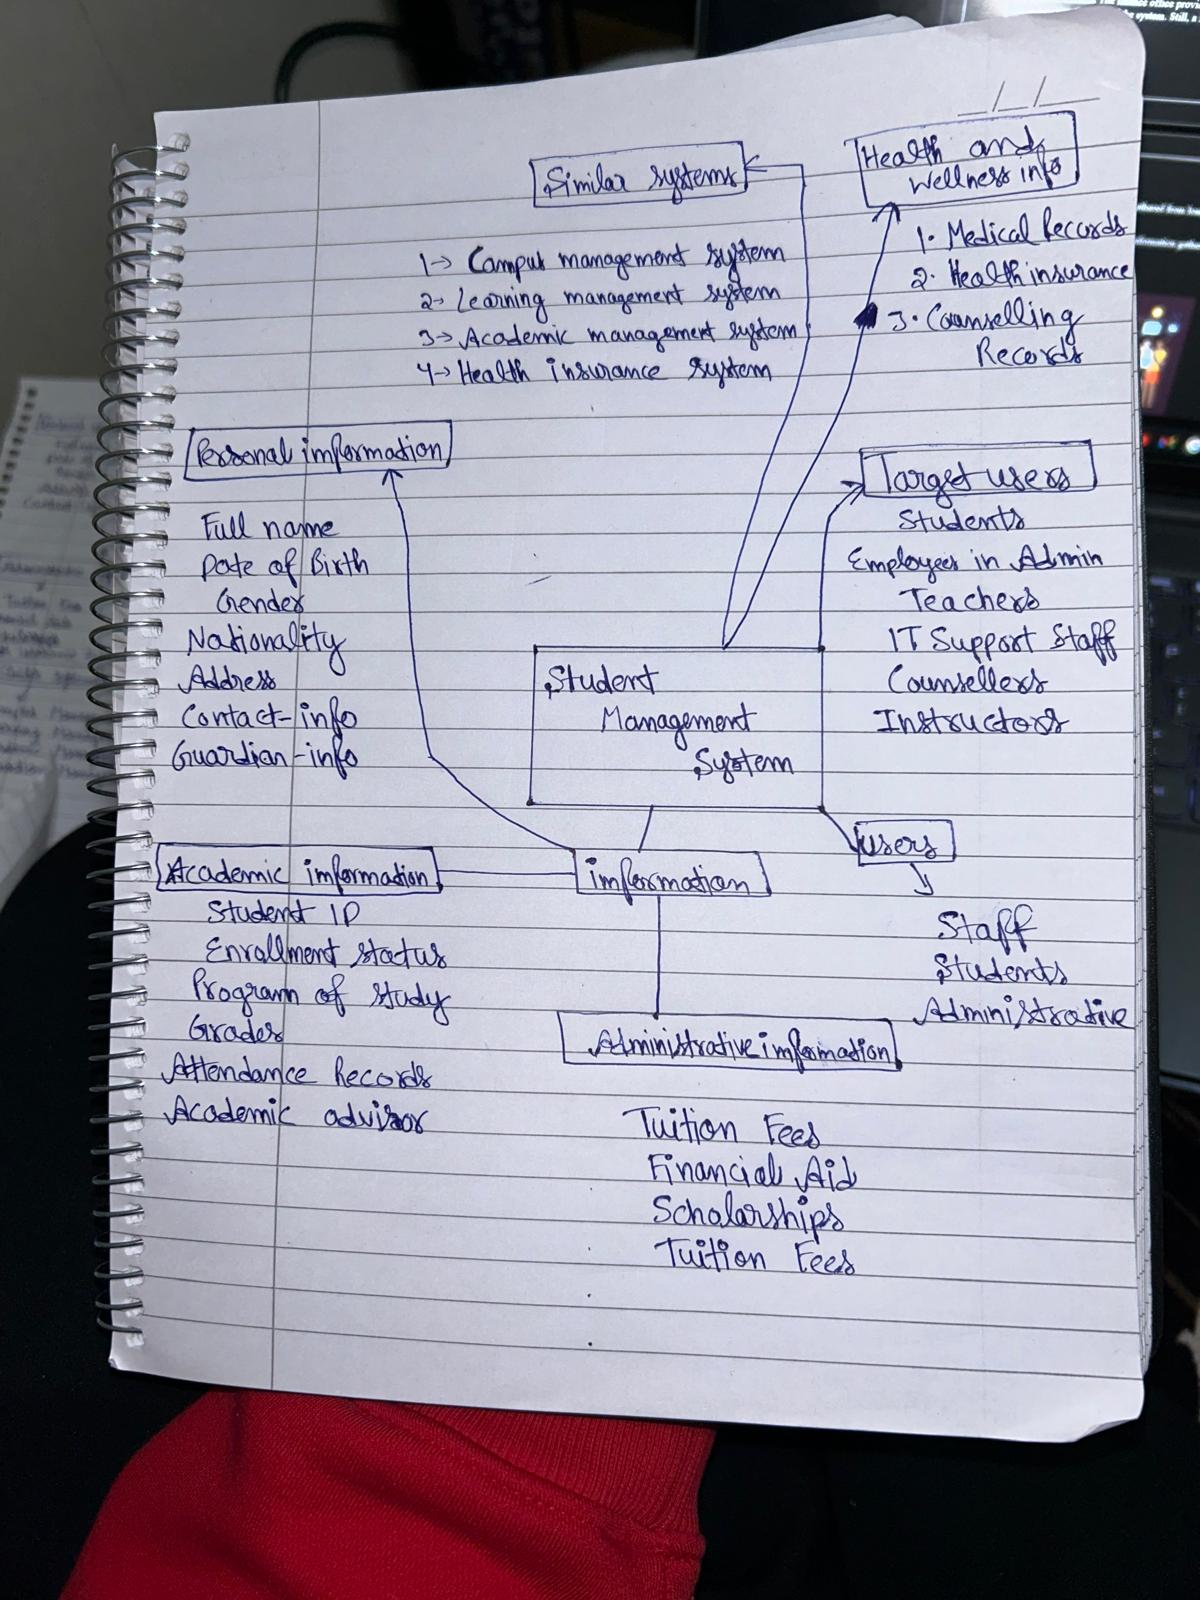 Similar systems
1→ Campus management system
2→ Learning management system
3→ Academic management system
4→ Health insurance system
Health and
Wellness info
1. Medical Records
2. Health insurance
3. Counselling
Records
Personal information
Full name
Date of Birth
Gender
Nationality
Address
Contact-info
Guardian-info
Target users
Students
Employees in Admin
Teachers
IT Support Staff
Counsellers
Instructors
Student
Management
System
users
Staff
Students
Administrative
information
Academic information
Student ID
Enrollment status
Program of study
Grades
Attendance Records
Academic advisor
Administrative information
Tuition Fees
Financial Aid
Scholarships
Tuition Fees